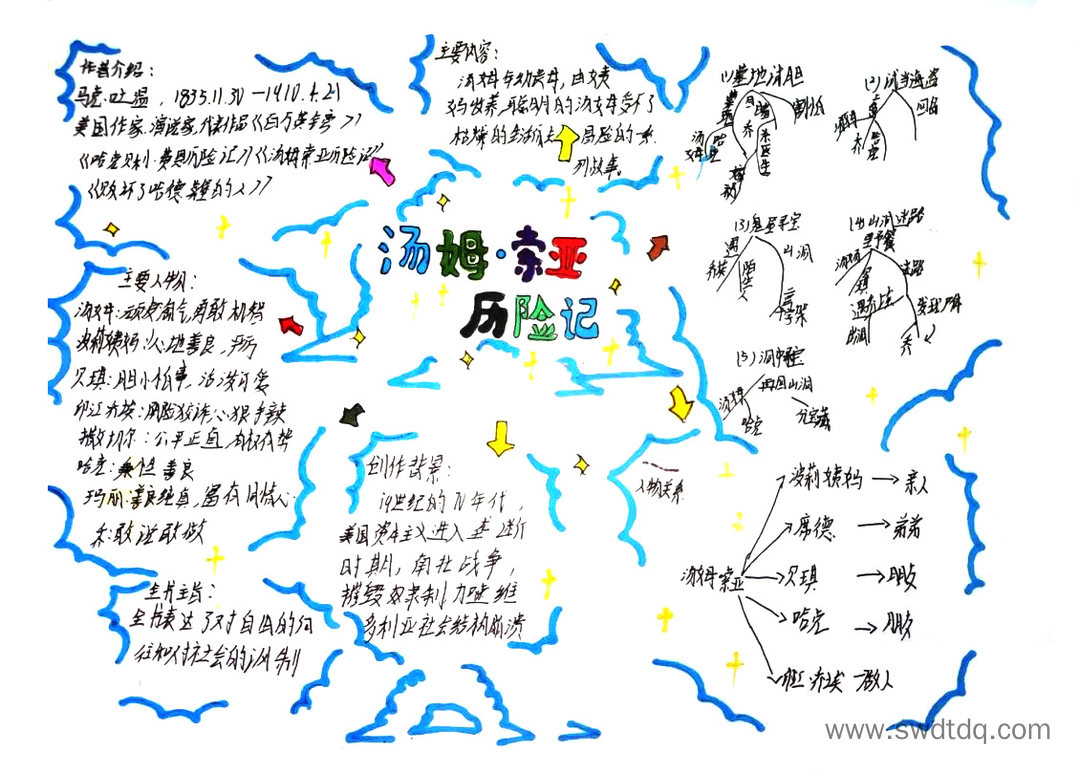 作者介绍:
马克·吐温, 1835.11.30—1910.4.21
美国作家、演说家,代表作品《百万英镑》
《哈克贝利·费恩历险记》《汤姆·索亚历险记》
《败坏了哈德莱堡的人》
主要内容:
汤姆年幼丧母,由
妈收养,聪明的汤姆受不了
枯燥的生活 冒险的一系
列故事。
汤姆·索亚
历险记
主要人物:
汤姆:顽皮淘气,勇敢机智
波莉姨妈:心地善良,
贝琪:胆小怕事,活泼可爱
印江·乔埃:阴险狡诈,心狠手辣
撒切尔:公平正直,有权有势
哈克: 善良
玛丽:善良纯真,富有同情心
乔:敢说敢做
全书主旨:
全书表达了对自由的向
往和对社会的讽刺
创作背景:
19世纪的70年代,
美国资本主义进入垄断
时期,南北战争,
摧毁奴隶制 维
多利亚社会结构崩溃
(1)墓地试胆
汤姆
哈克
(2)试当海盗
汤姆
乔
哈克
回家
(3)鬼屋寻宝
遇
乔埃
陌生人
山洞
(4)山洞迷路
野餐
汤姆
贝琪
迷路
遇乔埃
出洞
乔
(5)洞中寻宝
汤姆
哈克
再回山洞
人物关系
汤姆·索亚
波莉姨妈→亲人
席德→弟弟
贝琪→朋友
哈克→朋友
乔埃→敌人
www.swdtdq.com